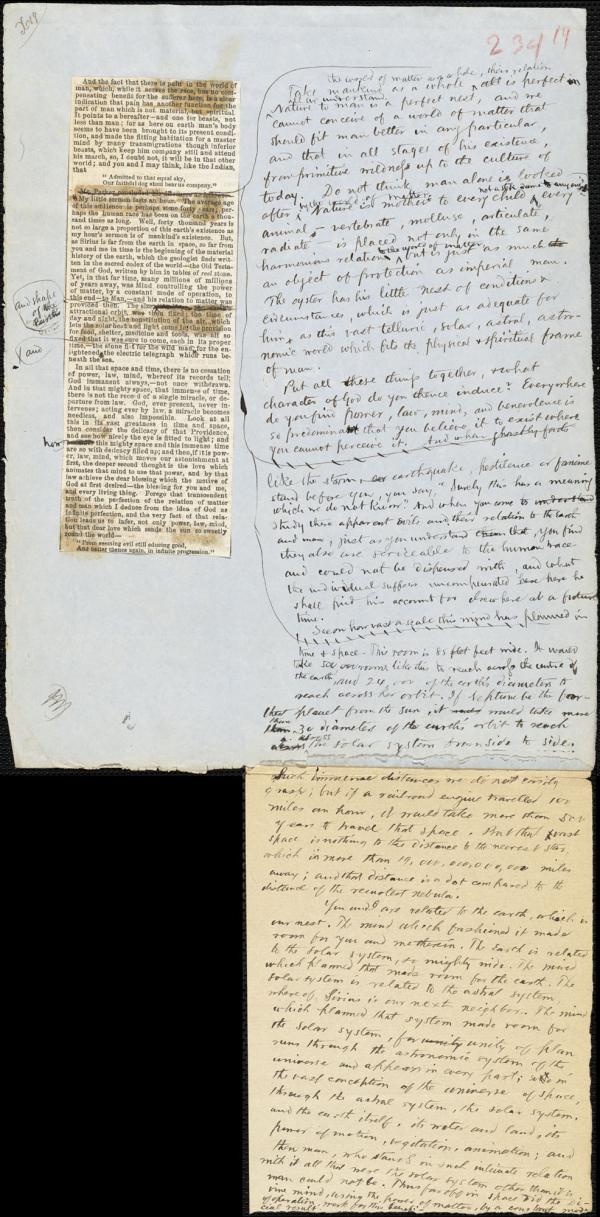 234 19
And the fact that there is pain in the world of
man, which, while it serves the race, has no com-
pensating benefit for the sufferer here, is a clear
indication that pain has another function for the
part of man which is not material, but spiritual.
It points to a hereafter—and one for beasts, not
less than man; for as here on earth man's body
seems to have been brought to its present condi-
tion, and made the fitting habitation for a master
mind by many transmigrations though inferior
beasts, which keep him company still and attend
his march, so, I doubt not, it will be in that other
world; and you and I may think, like the Indian,
that
"Admitted to that equal sky,
Our faithful dog shall bear us company."
My little sermon lasts an hour. The average age
of this audience is perhaps some forty years; per-
haps the human race has been on the earth a thou-
sand times as long. Well, forty thousand years is
not so large a proportion of this earth's existence as
my hour's sermon is of mankind's existence. But,
as Sirius is far from the earth in space, so far from
you and me in time is the beginning of the material
history of the earth, which the geologist finds writ-
ten in the sacred codex of the world—the Old Testa-
ment of God, written by him in tables of real stone.
Yet, in that far time, many millions of millions
of years away, was Mind controlling the power
of matter, by a constant mode of operation, to
this end—to Man,—and his relation to matter was
provided then. The
attractional orbit, was then fixed; the time of
day and night, the constitution of the air, which
lets the solar heat and light come in; the provision
for food, shelter, medicine and tools, was all so
fixed that it was sure to come, each in its proper
time,—the stone fit for the wild man, for the en-
lightened the electric telegraph which runs be-
neath the sea.
and shape
of the
Earth
air
In all that space and time, there is no cessation
of power, law, mind, whereof its records tell;
God immanent always,—not once withdrawn.
And in that mighty space, that immense of time,
there is not the record of a single miracle, or de-
parture from law. God, ever present, never in-
tervenes; acting ever by law, a miracle becomes
needless, and also impossible. Look at all
this in its vast greatness in time and space,
then consider the delicacy of that Providence,
and see how nicely the eye is fitted to light; and
how this mighty space and this immense time
are so with delicacy filled up; and then, if it is pow-
er, law, mind, which moves our astonishment at
first, the deeper second thought is the love which
animates that mind to use that power, and by that
law achieve the dear blessing which the motive of
God at first desired—the blessing for you and me,
and every living thing. Forego that transcendent
truth of the perfection of the relation of matter
and man which I deduce from the idea of God as
Infinite perfection, and the very fact of that rela-
tion leads us to infer, not only power, law, mind,
but that dear love which sends the sun to sweetly
round the world—
"From seeming evil still educing good,
And better thence again, in infinite progression."
the world of matter as a whole, their relation
Take mankind as a whole all is perfect in
Nature to man is a perfect nest, and we
cannot conceive of a world of matter that
should fit man better in any particular,
and that in all stages of his existence,
from primitive wildness up to the culture of
today. Do not think man alone is looked
after, Nature is mother to every child, every
animal,—vertebrate, mollusc, articulate,
radiate—is placed not only in the same
harmonious relation, but is just as much
an object of protection as imperial man.
The oyster has his little nest of conditions &
circumstances, which is just as adequate for
him, as this vast telluric, solar, astral, astro-
nomic world which fits the physical & spiritual frame
of man.
Put all these things together, & what
character of God do you thence induce? Everywhere
do you find power, law, mind, and benevolence is
so predominant that you believe it to exist where
you cannot perceive it. And when
like the storm, earthquake, pestilence or famine
stand before you, you say, "Surely this has a meaning
which we do not know." And when you come to
study these apparent evils and their relation to the earth
and man, just as you understand that, you find
they also are serviceable to the human race
and could not be dispensed with, and what
the individual suffers uncompensated here he
shall find his account for elsewhere at a future
time.
See on how vast a scale this mind has planned in
time & space. This room is 85 feet wide. It would
take rooms like this to reach across the centre of
the earth, and 24,000 of the earth's diameters to
reach across her orbit. If Neptune be the far-
thest planet from the sun, it would take more
than 30 diameters of the earth's orbit to reach
across the solar system from side to side.
Such immense distances we do not easily
grasp; but if a railroad engine travelled 100
miles an hour, it would take more than
years to travel that space. But that vast
space is nothing to the distance to the nearest star,
which is more than 19,000,000,000,000 miles
away; and that distance is a dot compared to the
distance of the remotest nebula.
You and I are related to the earth, which is
our nest. The mind which fashioned it made
room for you and me therein. The Earth is related
to the solar system, so mighty wide. The mind
which planned that made room for the earth. The
solar system is related to the astral system,
whereof Sirius is our next neighbor. The mind
which planned that system made room for
the solar system, for unity of plan
runs through the astronomic system of the
universe and appears in every part; so in
the vast conception of the universe of space,
through the astral system, the solar system,
and the earth itself, its water and land, its
power of motion, vegetation, animation; and
then man, who stands in such intimate relation
with it all that were the solar system other than it is
man could not be. Thus far off in space did the Di-
vine mind, using the power of matter, by a constant mode
of operation, work for this